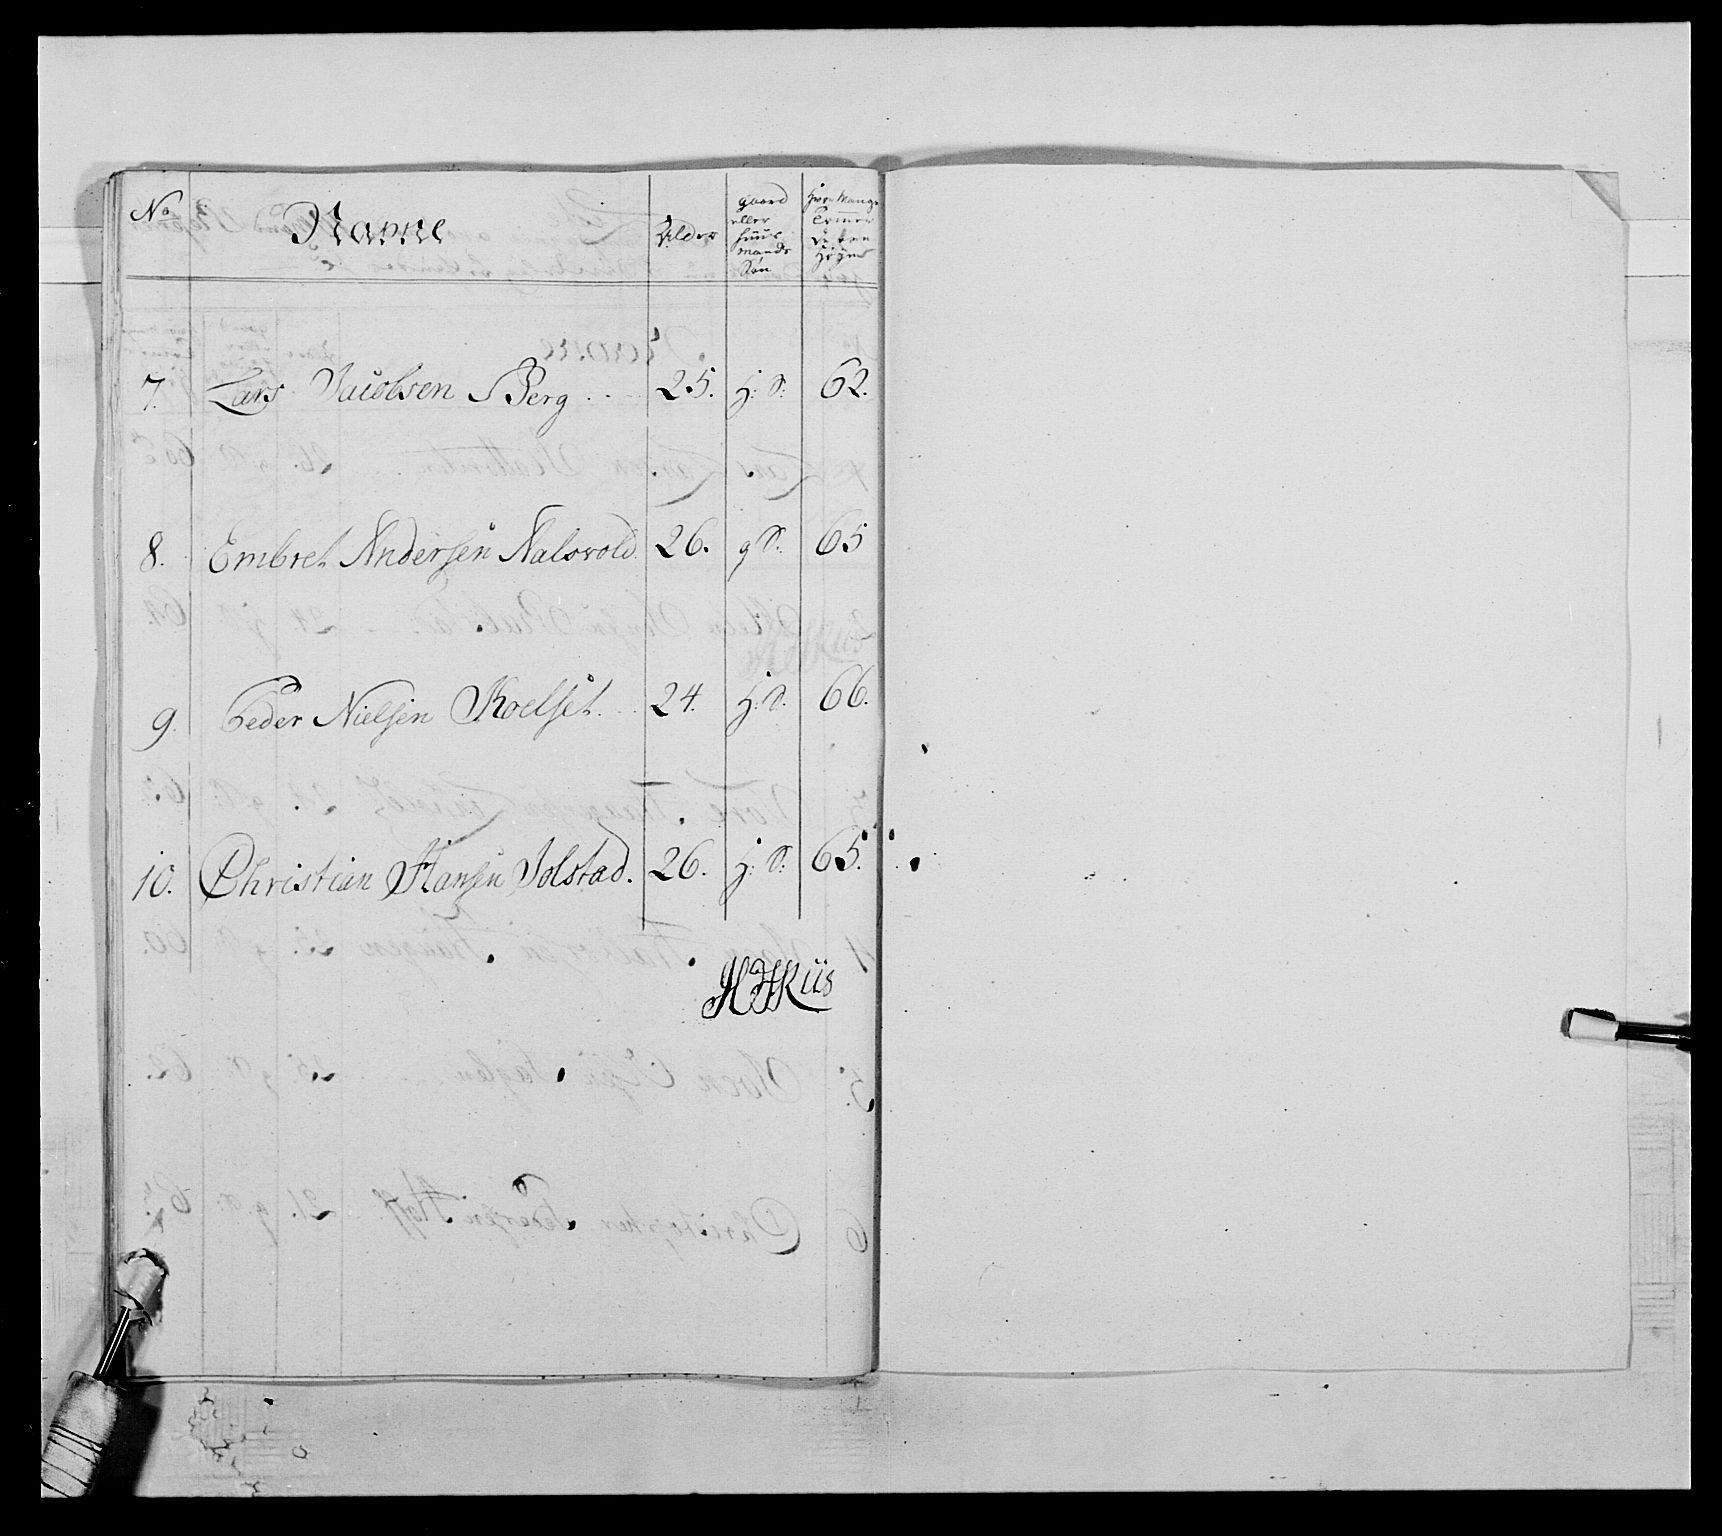 No Navne Alder gaard eller huus mands Søn hvor Mange Tommer de ere Høye
7. Lars Jacobsen Berg .. 25. h: S: 62.
8. Embret Andersen Nalsvold 26. g S: 65
9. Peder Nielsen Roelset .. 24. h: S: 66.
10. Christian Hansen Jolstad. 26. h: S: 65.
HRiis